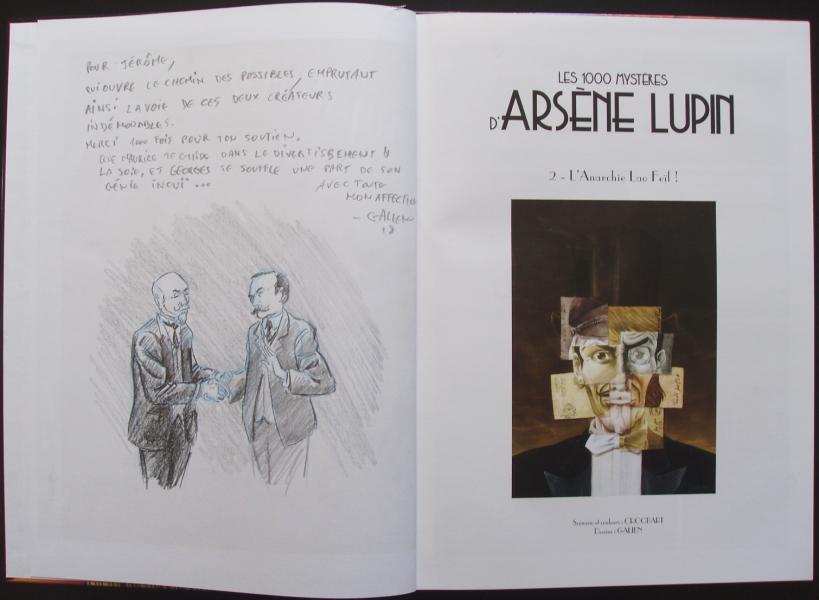 POUR JÉRÔME,
QUI OUVRE LE CHEMIN DES POSSIBLES, EMPRUTANT
AINSI LA VOIE DE CES DEUX CRÉATEURS
INDÉMODABLES.
MERCI 1000 FOIS POUR TON SOUTIEN.
QUE MAURICE TE GUIDE DANS LE DIVERTISSEMENT &
LA JOIE, ET GEORGES TE SOUFFLE UNE PART DE SON
GÉNIE INOUÏ...
AVEC TOUTE
MON AFFECTION
- GALIEN
18
LES 1000 MYSTÈRES
D'ARSÈNE LUPIN
2 - L'Anarchie Lao Feïl !
Scénario et couleurs : CROCBART
Dessins : GALIEN